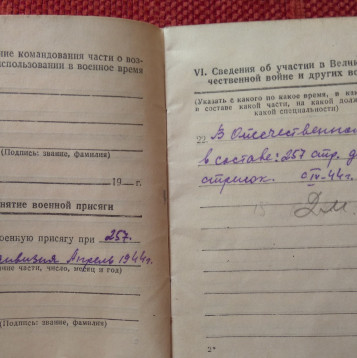 ние командования части о воз-
использовании в военное время
(Подпись: звание, фамилия)
19 — г.
нятие военной присяги
оенную присягу при 257.
дивизия Апрель 1944г.
ние части, число, месяц и год)
(Подпись: звание, фамилия)
VI. Сведения об участии в Вели
чественной войне и других во
(Указать с какого по какое время, и ка
в составе какой части, на какой долж
какой специальности)
22. В Отечественной
в составе: 257 стр. д
стрелок. с IV-44г.
2*